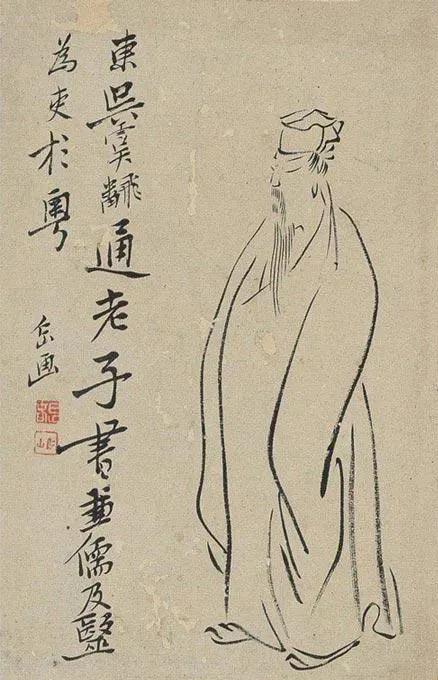 東吳通老子書兼儒及醫
為吏於粵
岳画